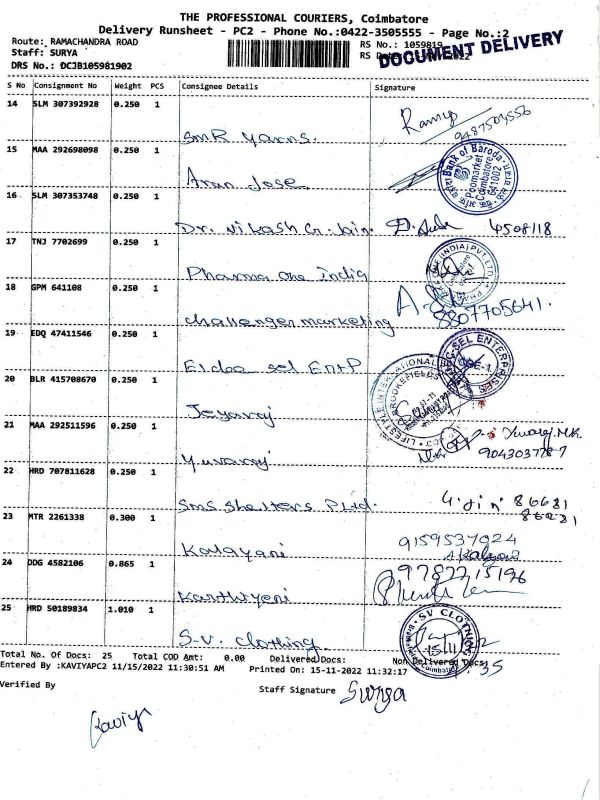 THE PROFESSIONAL COURIERS, Coimbatore
Delivery Runsheet - PC2 - Phone No.:0422-3505555 - Page No.:2
Route: RAMACHANDRA ROAD
Staff: SURYA
DRS No.: DCJB105981902
RS No.: 1059819
DOCUMENT DELIVERY
S No Consignment No Weight PCS Consignee Details Signature
14 SLM 307392928 0.250 1
SMR Yarns.
9487509556
15 MAA 292698098 0.250 1
Arun Jose
Bank of Baroda
Poomarket
Coimbatore
641002
16 SLM 307353748 0.250 1
Dr. Vikash G. Jain. 4508118
17 TNJ 7702699 0.250 1
Pharma one india
(INDIA) PVT. LTD.
18 GPM 641108 0.250 1
challenger marketing
8807705641.
19 EDQ 47411546 0.250 1
Eldee sel EntP
SEL ENTERPRISES
20 BLR 415708670 0.250 1
Jeyaraj
LIFESTYLE INTERNATIONAL
BROOKEFIELDS
21 MAA 292511596 0.250 1
Yuvaraj
Yuvaraj.M.K.
22 HRD 707811628 0.250 1
SMS Shelters P Ltd.
86681
23 MTR 2261338 0.300 1
Kalayani
9159537024
24 DDG 4582106 0.865 1
Karthiyeni
9787715196
25 HRD 50189834 1.010 1
S.V. Clothing
SV CLOTHING
Total No. Of Docs: 25 Total COD Amt: 0.00 Delivered Docs: Non Delivered Docs:
Entered By :KAVIYAPC2 11/15/2022 11:30:51 AM Printed On: 15-11-2022 11:32:17
Verified By Staff Signature Surya
Kaviya